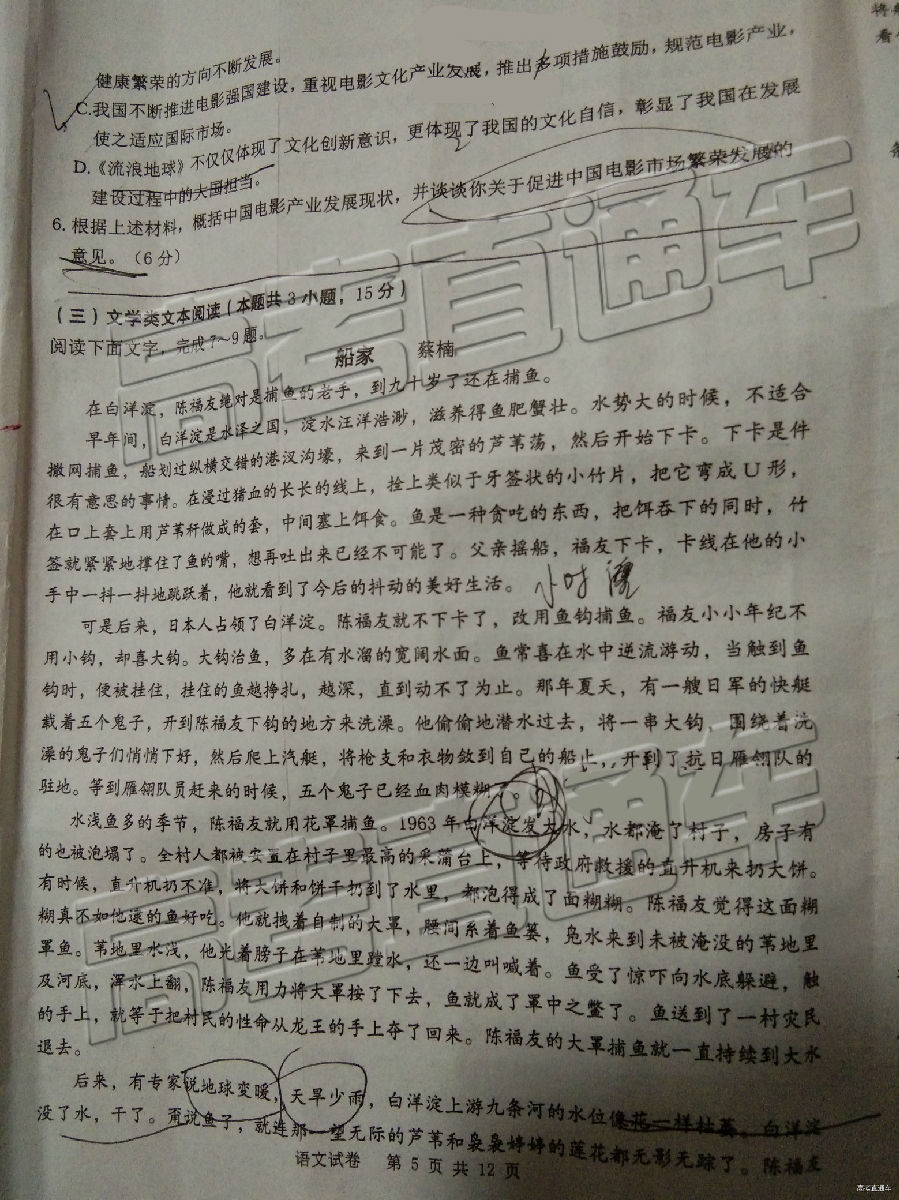 健康繁荣的方向不断发展。
C.我国不断推进电影强国建设，重视电影文化产业发展，推出多项措施鼓励，规范电影产业，
使之适应国际市场。
D.《流浪地球》不仅仅体现了文化创新意识，更体现了我国的文化自信，彰显了我国在发展
建设过程中的大国担当。
6.根据上述材料，概括中国电影产业发展现状，并谈谈你关于促进中国电影市场繁荣发展的
意见。（6分）
（三）文学类文本阅读（本题共3小题，15分）
阅读下面文字，完成7～9题。
船家 蔡楠
在白洋淀，陈福友绝对是捕鱼的老手，到九十岁了还在捕鱼。
早年间，白洋淀是水泽之国，淀水汪洋浩渺，滋养得鱼肥蟹壮。水势大的时候，不适合
撒网捕鱼，船划过纵横交错的港汊沟壕，来到一片茂密的芦苇荡，然后开始下卡。下卡是件
很有意思的事情。在浸过猪血的长长的线上，拴上类似于牙签状的小竹片，把它弯成U形，
在口上套上用芦苇秆做成的套，中间塞上饵食。鱼是一种贪吃的东西，把饵吞下的同时，竹
签就紧紧地撑住了鱼的嘴，想再吐出来已经不可能了。父亲摇船，福友下卡，卡线在他的小
手中一抖一抖地跳跃着，他就看到了今后的抖动的美好生活。
小时
可是后来，日本人占领了白洋淀。陈福友就不下卡了，改用鱼钩捕鱼。福友小小年纪不
用小钩，却喜大钩。大钩治鱼，多在有水溜的宽阔水面。鱼常喜在水中逆流游动，当触到鱼
钩时，便被挂住，挂住的鱼越挣扎，越深，直到动不了为止。那年夏天，有一艘日军的快艇
载着五个鬼子，开到陈福友下钩的地方来洗澡。他偷偷地潜水过去，将一串大钩，围绕着洗
澡的鬼子们悄悄下好，然后爬上汽艇，将枪支和衣物敛到自己的船上，开到了抗日雁翎队的
驻地。等到雁翎队员赶来的时候，五个鬼子已经血肉模糊
水浅鱼多的季节，陈福友就用花罩捕鱼。1963年白洋淀发大水，水都淹了村子，房子有
的也被泡塌了。全村人都被安置在村子里最高的采蒲台上，等待政府救援的直升机来扔大饼。
有时候，直升机扔不准，将大饼和饼干扔到了水里，都泡得成了面糊糊。陈福友觉得这面糊
糊真不如他逮的鱼好吃。他就拽着自制的大罩，腰间系着鱼篓，凫水来到未被淹没的苇地里
罩鱼。苇地里水浅，他光着膀子在苇地里蹚水，还一边叫喊着。鱼受了惊吓向水底躲避，触
及河底，浑水上翻，陈福友用力将大罩按了下去，鱼就成了罩中之鳖了。鱼送到了一村灾民
的手上，就等于把村民的性命从龙王的手上夺了回来。陈福友的大罩捕鱼就一直持续到大水
退去。
后来，有专家说地球变暖，天旱少雨，白洋淀上游九条河的水位像花一样枯萎。白洋淀
没了水，干了。甭说鱼了，就连那一望无际的芦苇和袅袅婷婷的莲花都无影无踪了。陈福友
语文试卷 第5页共12页
高考直通车